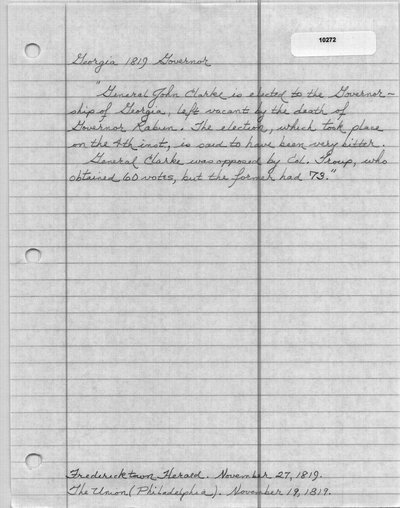 10272
Georgia 1819 Governor
"General John Clarke is elected to the Governor-
ship of Georgia, left vacant by the death of
Governor Rabun. The election, which took place
on the 4th inst, is said to have been very bitter.
General Clarke was opposed by Col. Troup, who
obtained 60 votes, but the former had 73."
Fredericktown Herald. November 27, 1819.
The Union (Philadelphia). November 19, 1819.